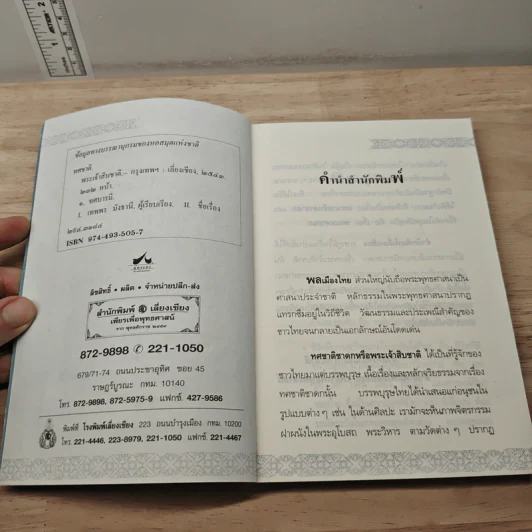 ข้อมูลทางบรรณานุกรมของหอสมุดแห่งชาติ
ทศชาติ.
พระเจ้าสิบชาติ.- กรุงเทพฯ : เลี่ยงเชียง, ๒๕๔๓.
๒๓๒ หน้า.
๑. ทศบารมี.
I. เทพพร มังธานี, ผู้เรียบเรียง. II. ชื่อเรื่อง
๒๙๔.๓๑๘๘
ISBN 974-493-505-7
ลิขสิทธิ์ • ผลิต • จำหน่ายปลีก-ส่ง
สำนักพิมพ์ เลี่ยงเชียง
เพียรเพื่อพุทธศาสน์
872-9898 ✆ 221-1050
679/71-74 ถนนประชาอุทิศ ซอย 45
ราษฎร์บูรณะ กทม. 10140
โทร. 872-9898, 872-5975-9 แฟกซ์. 427-9586
พิมพ์ที่ โรงพิมพ์เลี่ยงเชียง 223 ถนนบำรุงเมือง กทม. 10200
โทร. 221-4446, 223-8979, 221-1050 แฟกซ์. 221-4467
คำนำสำนักพิมพ์
พลเมืองไทย ส่วนใหญ่นับถือพระพุทธศาสนาเป็น
ศาสนาประจำชาติ หลักธรรมในพระพุทธศาสนาปรากฏ
แทรกซึมอยู่ในวิถีชีวิต วัฒนธรรมและประเพณีสำคัญของ
ชาวไทยจนกลายเป็นเอกลักษณ์อันโดดเด่น
ทศชาติชาดกหรือพระเจ้าสิบชาติ ได้เป็นที่รู้จักของ
ชาวไทยมาแต่บรรพบุรุษ เนื้อเรื่องและหลักจริยธรรมจากเรื่อง
ทศชาติชาดกนั้น บรรพบุรุษไทยได้นำเสนอแก่อนุชนใน
รูปแบบต่าง ๆ เช่น ในด้านศิลปะ เรามักจะเห็นภาพจิตรกรรม
ฝาผนังในพระอุโบสถ พระวิหาร ตามวัดต่าง ๆ ปรากฏ